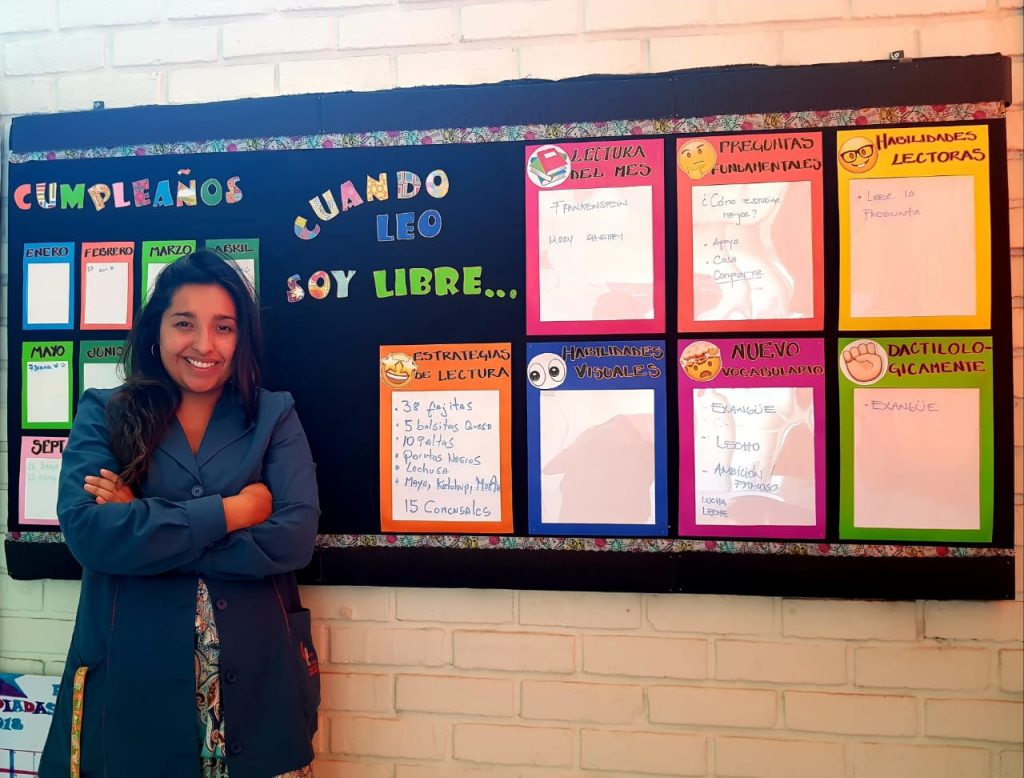 CUMPLEAÑOS
ENERO
FEBRERO
MARZO
ABRIL
MAYO
JUNIO
SEPT
CUANDO
LEO
SOY LIBRE...
LECTURA
DEL MES
FRANKENSTEIN
MARY SHELLEY
PREGUNTAS
FUNDAMENTALES
¿CÓMO ESTUDIAR
MEJOR?
• APOYO
• CASA
• COMPARTIR
HABILIDADES
LECTORAS
• LEER LA
PREGUNTA
ESTRATEGIAS
DE LECTURA
• 38 fajitas
• 5 bolsitas QUESO
• 10 PALTAS
• POROTOS NEGROS
• LECHUGA
• MAYO, KETCHUP,
15 COMENSALES
HABILIDADES
VISUALES
NUEVO
VOCABULARIO
- EXANGÜE
- LECHO
- AMBICIÓN /
LUCHA
LECHE
DACTILOLO-
GICAMENTE
- EXANGÜE
PIADAS
2018